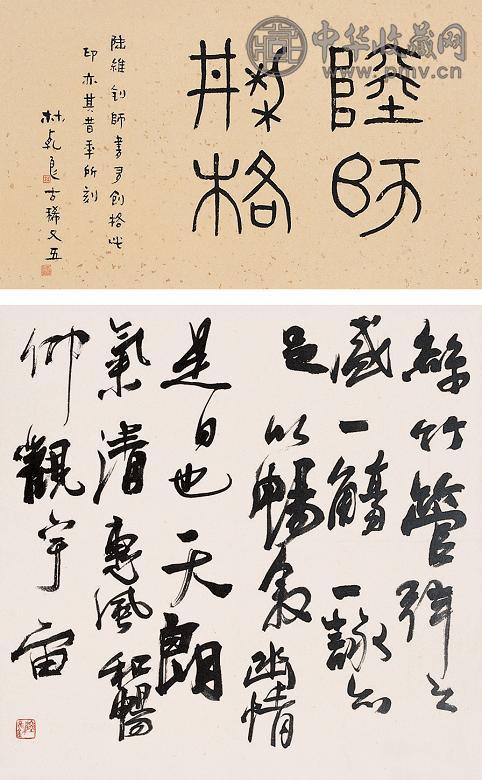 中华收藏网
www.pmv.cn
陸師
刱格
陸維釗師書多創格此
印亦其昔年所刻
林乾良古稀又五
絲竹管弦之
盛一觴一詠亦
足以暢叙幽情
是日也天朗
氣清惠風和暢
仰觀宇宙